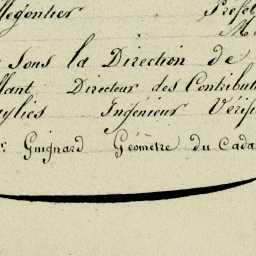 Legontier Préfet
M.
Sous la Direction de
llant Directeur des Contribut
aylies Ingénieur Vérif
r. Guignard Géomètre du Cada